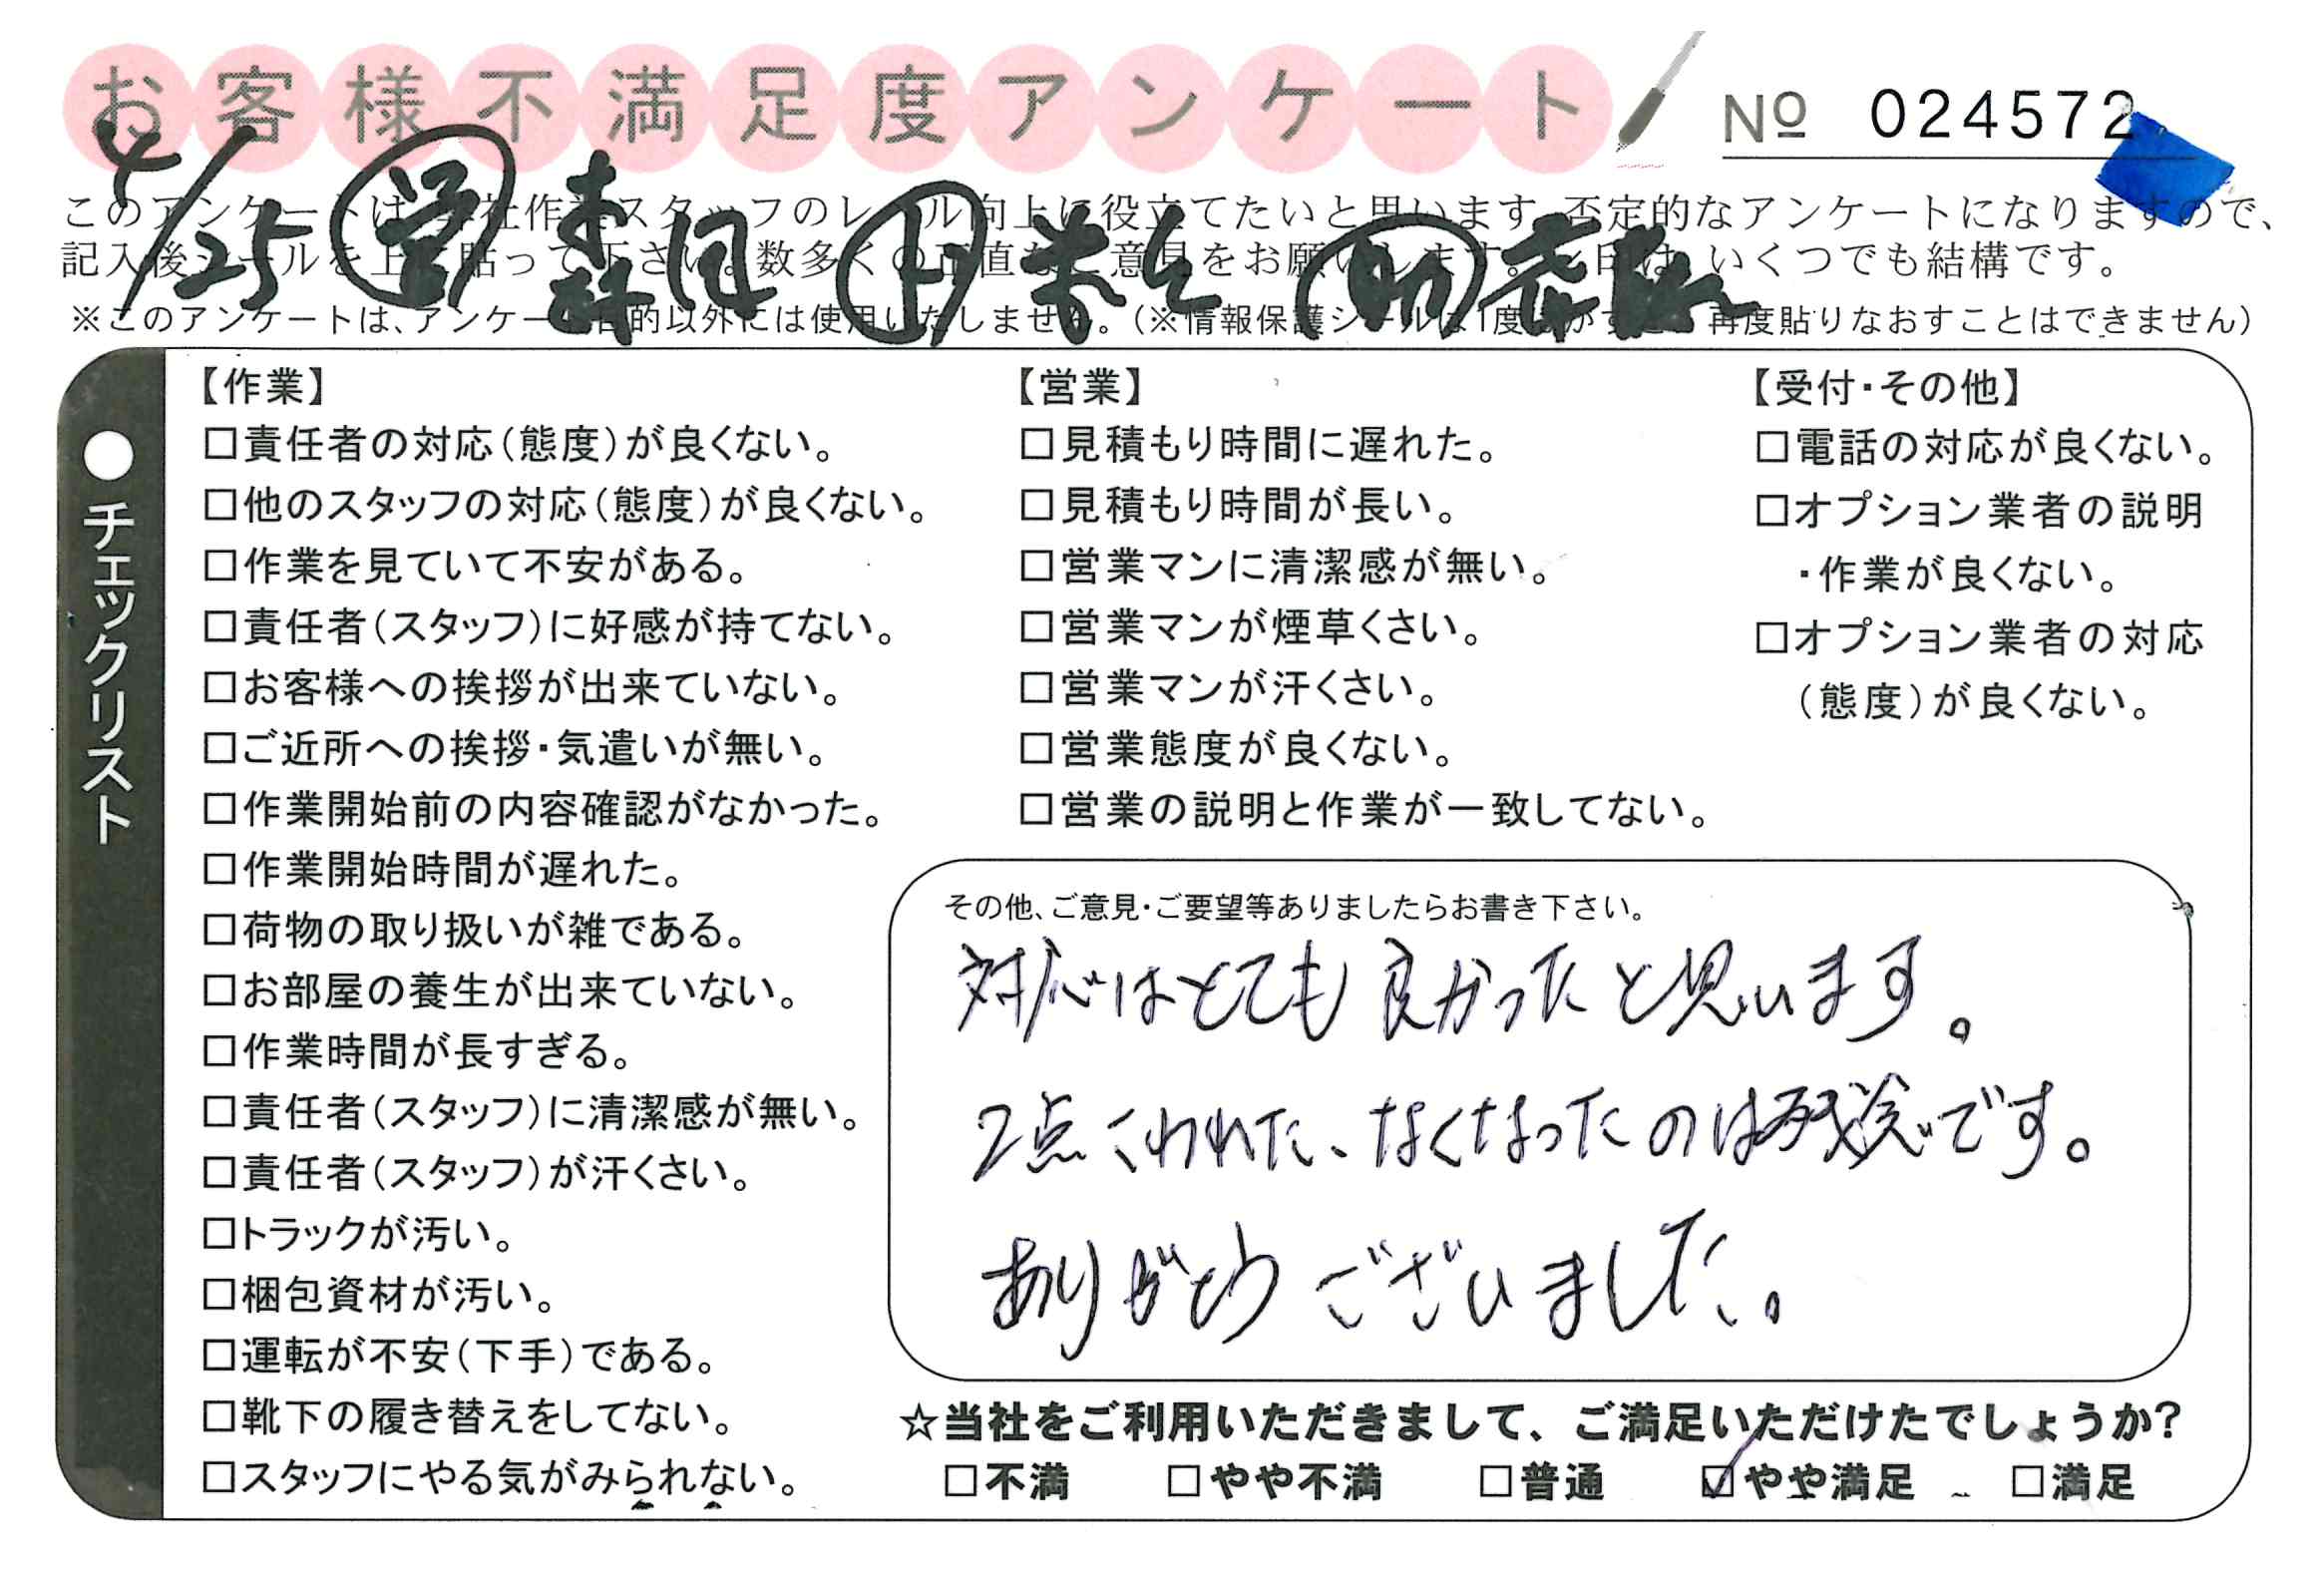 お客様不満足度アンケート
№ 024572
4/25 営 森 ト 助
このアンケートは、弊社作業スタッフのレベル向上に役立てたいと思います。否定的なアンケートになりますので、
記入後シールを上に貼って下さい。数多くの正直なご意見をお願いします。☑印は、いくつでも結構です。
※このアンケートは、アンケート目的以外には使用いたしません。（※情報保護シールは1度はがすと、再度貼りなおすことはできません）
●チェックリスト
【作業】
□責任者の対応（態度）が良くない。
□他のスタッフの対応（態度）が良くない。
□作業を見ていて不安がある。
□責任者（スタッフ）に好感が持てない。
□お客様への挨拶が出来ていない。
□ご近所への挨拶・気遣いが無い。
□作業開始前の内容確認がなかった。
□作業開始時間が遅れた。
□荷物の取り扱いが雑である。
□お部屋の養生が出来ていない。
□作業時間が長すぎる。
□責任者（スタッフ）に清潔感が無い。
□責任者（スタッフ）が汗くさい。
□トラックが汚い。
□梱包資材が汚い。
□運転が不安（下手）である。
□靴下の履き替えをしてない。
□スタッフにやる気がみられない。
【営業】
□見積もり時間に遅れた。
□見積もり時間が長い。
□営業マンに清潔感が無い。
□営業マンが煙草くさい。
□営業マンが汗くさい。
□営業態度が良くない。
□営業の説明と作業が一致してない。
【受付・その他】
□電話の対応が良くない。
□オプション業者の説明
・作業が良くない。
□オプション業者の対応
（態度）が良くない。
その他、ご意見・ご要望等ありましたらお書き下さい。
対応はとても良かったと思います。
2点こわれた、なくなったのは残念です。
ありがとうございました。
☆当社をご利用いただきまして、ご満足いただけたでしょうか？
□不満 □やや不満 □普通 ☑やや満足 □満足